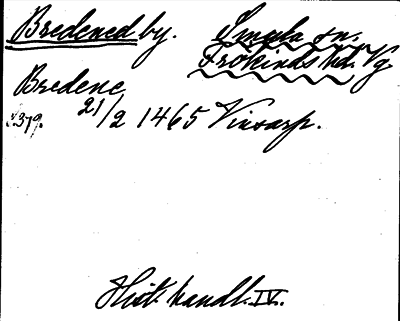 Bredened by. Smula sn.
Frökinds hd. Vg
Bredene
s. 379. 21/2 1465 Vinsarp.
Hist. handl. IV.